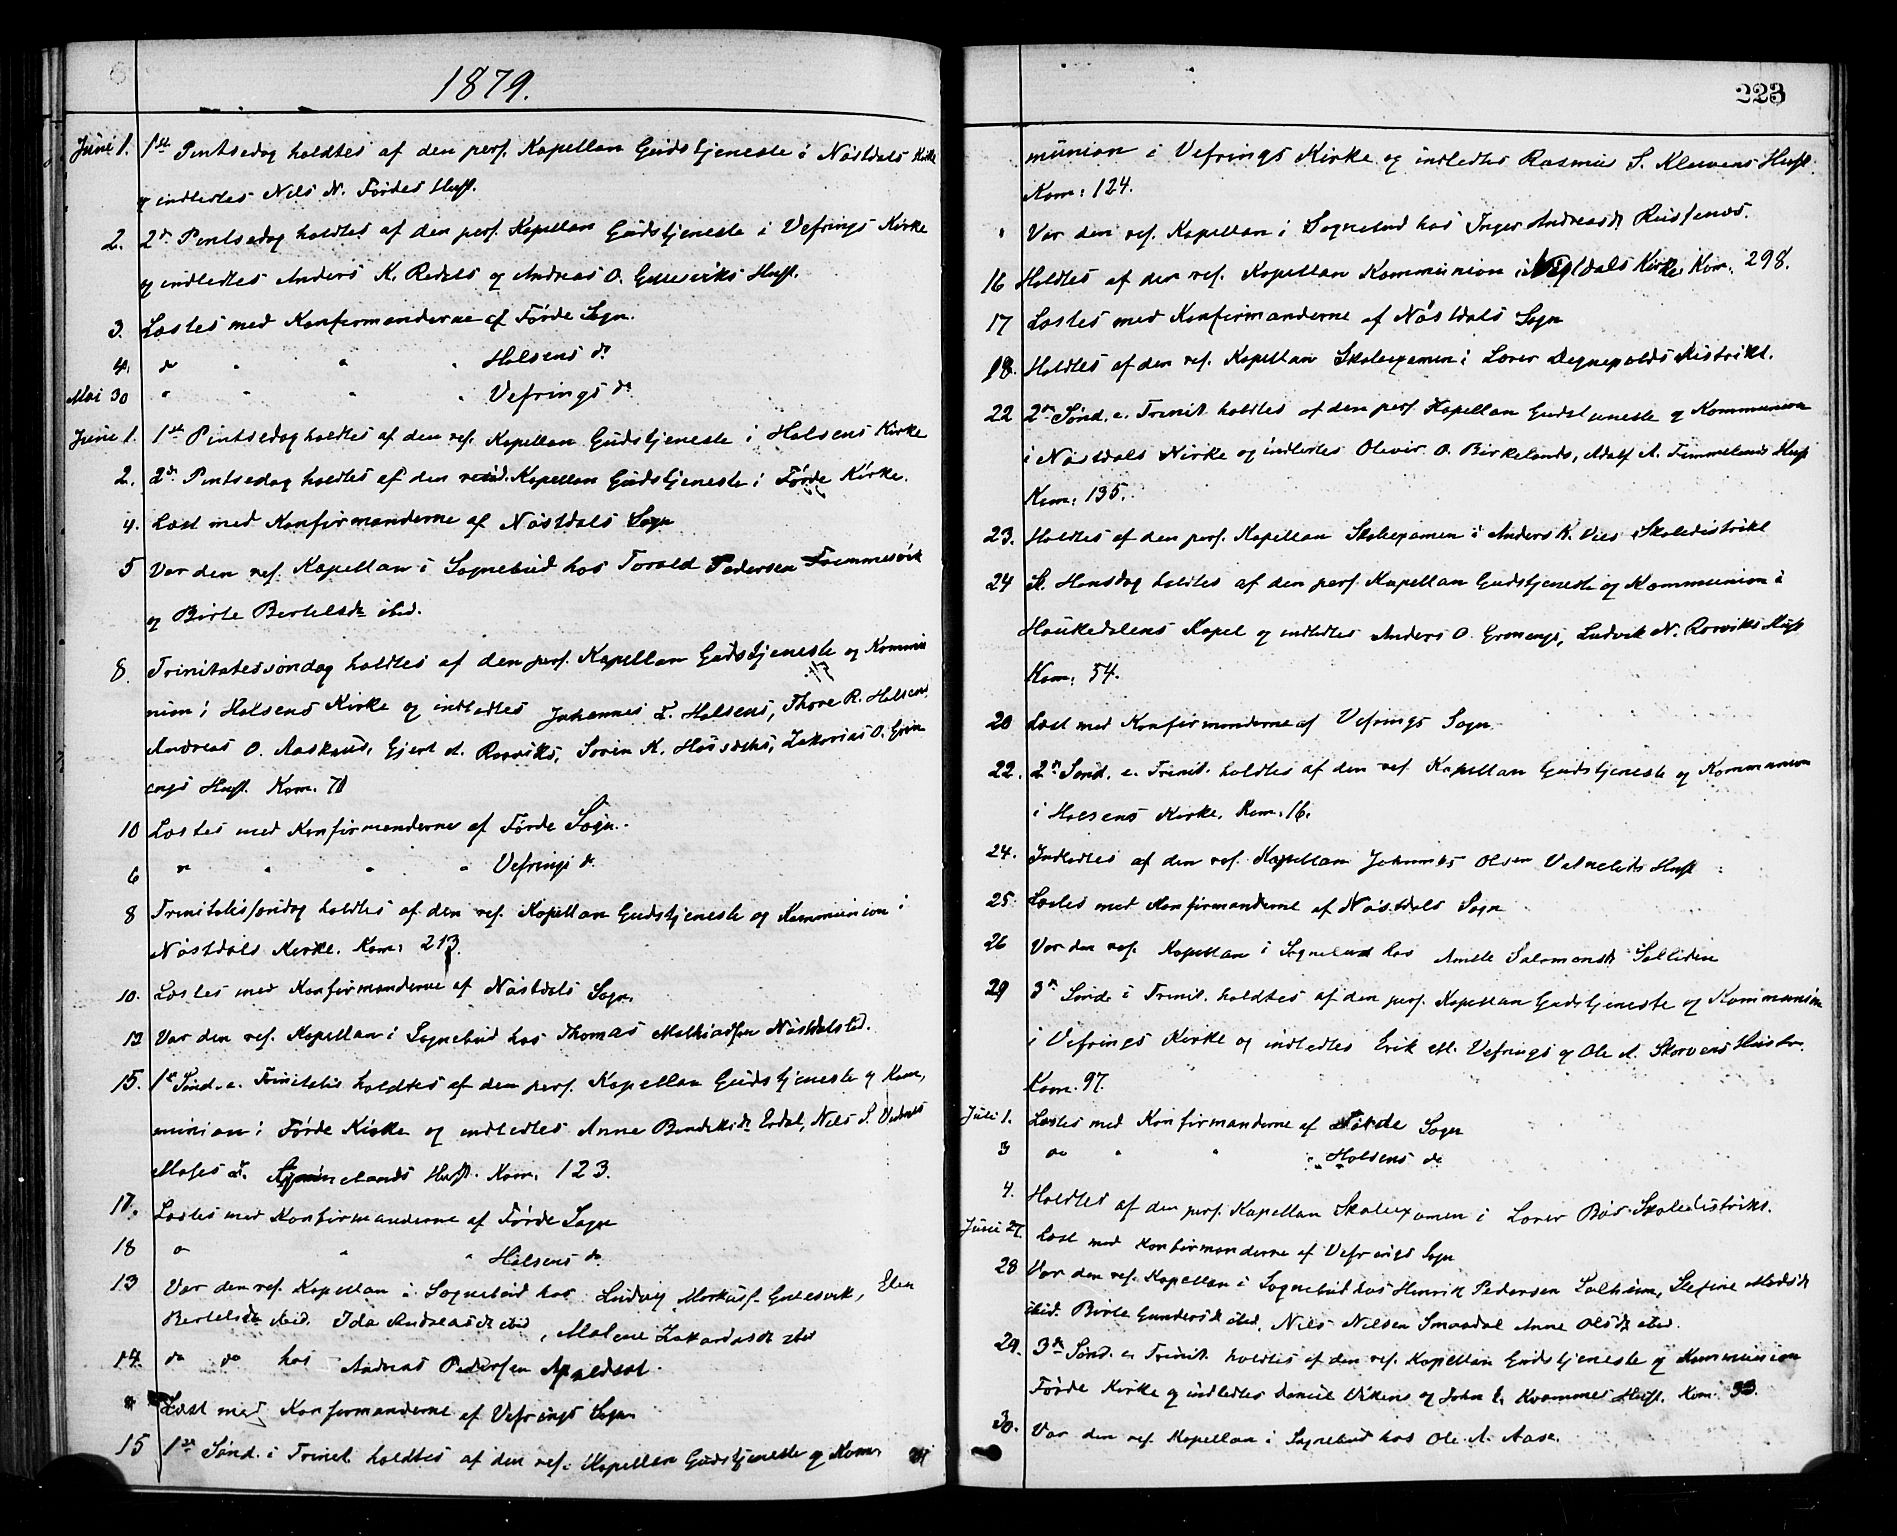 1879.
Juni 1. 1ste Pintsedag holdtes af den pers. Kapellan Gudstjeneste i Nøstdals Kirke
og indledtes Nils N. Førdes Hust.
2. 2den Pintsedag holdtes af den pers. Kapellan Gudstjeneste i Vefrings Kirke
og indledtes Anders K. Redals og Andreas O. Gullesviks Hust.
3. Læstes med Konfirmanderne af Førde Sogn.
4. do " " " Holsens do
Mai 30 " " " " Vefrings do
Juni 1. 1ste Pintsedag holdtes af den res. Kapellan Gudstjeneste i Holsens Kirke
2. 2den Pintsedag holdtes af den resid. Kapellan Gudstjeneste i Førde Kirke.
4. Læst med Konfirmanderne af Nøstdals Sogn
5 Var den res. Kapellan i Sognebud hos Torald Pedersen
og Birte Bertelsdr ibid.
8. Trinitatessøndag holdtes af den pers. Kapellan Gudstjeneste og Kommu
nion i Holsens Kirke og indledtes Johannes T. Holsens, Thore R. Holsens
Andreas O. Aaskrud, Ejert A. Rørviks, Søren K. Zakarias O. Grøn
engs Hust. Kom. 71
10 Læstes med Konfirmanderne af Førde Sogn.
6 " " " " Vefrings do
8 Trinitatissøndag holdtes af den res. Kapellan Gudstjeneste og Kommunion i
Nøstdals Kirke. Kom: 213.
10. Læstes med Konfirmanderne af Nøstdals Sogn
12 Var den res. Kapellan i Sognebud hos Thomas Mathiassen Nøstdalslid.
15. 1ste Sønd. e. Trinitatis holdtes af den pers. Kapellan Gudstjeneste og Kom,
munion i Førde Kirke og indledtes Anne Bendiksdr Erdal, Nils S.
Moses T. Hust. Kom. 123.
17. Læstes med Konfirmanderne af Førde Sogn
18 " " " Holsens do
13 Var den res. Kapellan i Sognebud hos Ludvig Markuss. Gullesvik, Elen
Bertelsdr ibid. Ida Andreasdr ibid, Malene Zakariasdr ibid
14. do do hos Andreas Pedersen
" Læst med Konfirmanderne af Vefrings Sogn
15 1ste Sønd. i Trinit. holdtes af den res. Kapellan Gudstjeneste og Kom
223
munion i Vefrings Kirke og indledtes Rasmus S. Klevens Hust.
Kom: 124.
" Var den res. Kapellan i Sognebud hos Inger Andreasdr
16 Holdtes af den res. Kapellan Kommunion i Nøstdals Kirke. Kom. 298.
17 Læstes med Konfirmanderne af Nøstdals Sogn
18. Holdtes af den res. Kapellan Skoleexamen i Lærer Degnepolds Distrikt.
22 2den Sønd. e. Trinit. holdtes af den pers. Kapellan Gudstjeneste og Kommunion
i Nøstdals Kirke og indledtes Oliver O. Birkelands, Adolf A. Timmelands Hust
Kom: 135.
23. Holdtes af den pers. Kapellan Skoleexamen i Anders K. Vies Skoledistrikt
24 St. Hansdag holdtes af den pers. Kapellan Gudstjeneste og Kommunion i
Haukedalens Kapel og indledtes Anders O. Grønengs, Ludvik N. Rørviks Hust
Kom: 54.
20 Læst med Konfirmanderne af Vefrings Sogn
22. 2den Sønd. e. Trinit. holdtes af den res. Kapellan Gudstjeneste og Kommunion
i Holsens Kirke. Kom. 16.
24. Indledtes af den res. Kapellan Johannes Olsen Hust
25. Læstes med Konfirmanderne af Nøstdals Sogn
26 Var den res. Kapellan i Sognebud hos Salamonsdr
29 3die Sønd. i Trinit. holdtes af den pers. Kapellan Gudstjeneste og Kommunion
i Vefrings Kirke og indledtes Erik M. Vefrings og Ole A. Skorvens Hustr.
Kom. 97.
Juli 1. Læstes med Konfirmanderne af Førde Sogn
3 do " " " Holsens do
4. Holdtes af den pers. Kapellan Skoleexamen i Lærer Bøs Skoledistrikt.
Juni 27. Læst med Konfirmanderne af Vefrings Sogn
28 Var den res. Kapellan i Sognebud hos Henrik Pedersen Solheim, Stefine Madsdr
ibid. Birte Gundersdr ibid, Nils Nilsen Smaadal Anne Olsdr ibid.
29. 3die Sønd. e. Trinit. holdtes af den res. Kapellan Gudstjeneste og Kommunion
Førde Kirke og indledtes Daniel Vikens og John E. Kvammes Hust. Kom. 93.
30. Var den res. Kapellan i Sognebud hos Ole A. Aase.